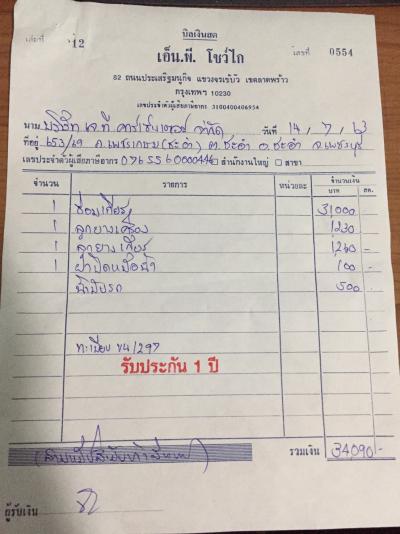 บิลเงินสด
เล่มที่ 12
เอ็น.ที. โชว์ไก
เลขที่ 0554
82 ถนนประเสริฐมนูกิจ แขวงจรเข้บัว เขตลาดพร้าว
กรุงเทพฯ 10230
เลขประจำตัวผู้เสียภาษีอากร 3100400406954
นาม บริษัท เจ.ที จำกัด วันที่ 14 / 7 / 63
ที่อยู่ 653/69 ถ.เพชรเกษม (ชะอำ) ต.ชะอำ อ.ชะอำ จ.เพชรบุรี
เลขประจำตัวผู้เสียภาษีอากร สำนักงานใหญ่ สาขา
จำนวน รายการ หน่วยละ จำนวนเงิน
บาท สต.
1 ซ่อมเกียร์ 31000
1 ลูกยางเครื่อง 1230
1 ลูกยางเกียร์ 1260 -
1 ฝาปิดหม้อน้ำ 100 -
500
ทะเบียน 297
รับประกัน 1 ปี
รวมเงิน 34,090 -
ผู้รับเงิน